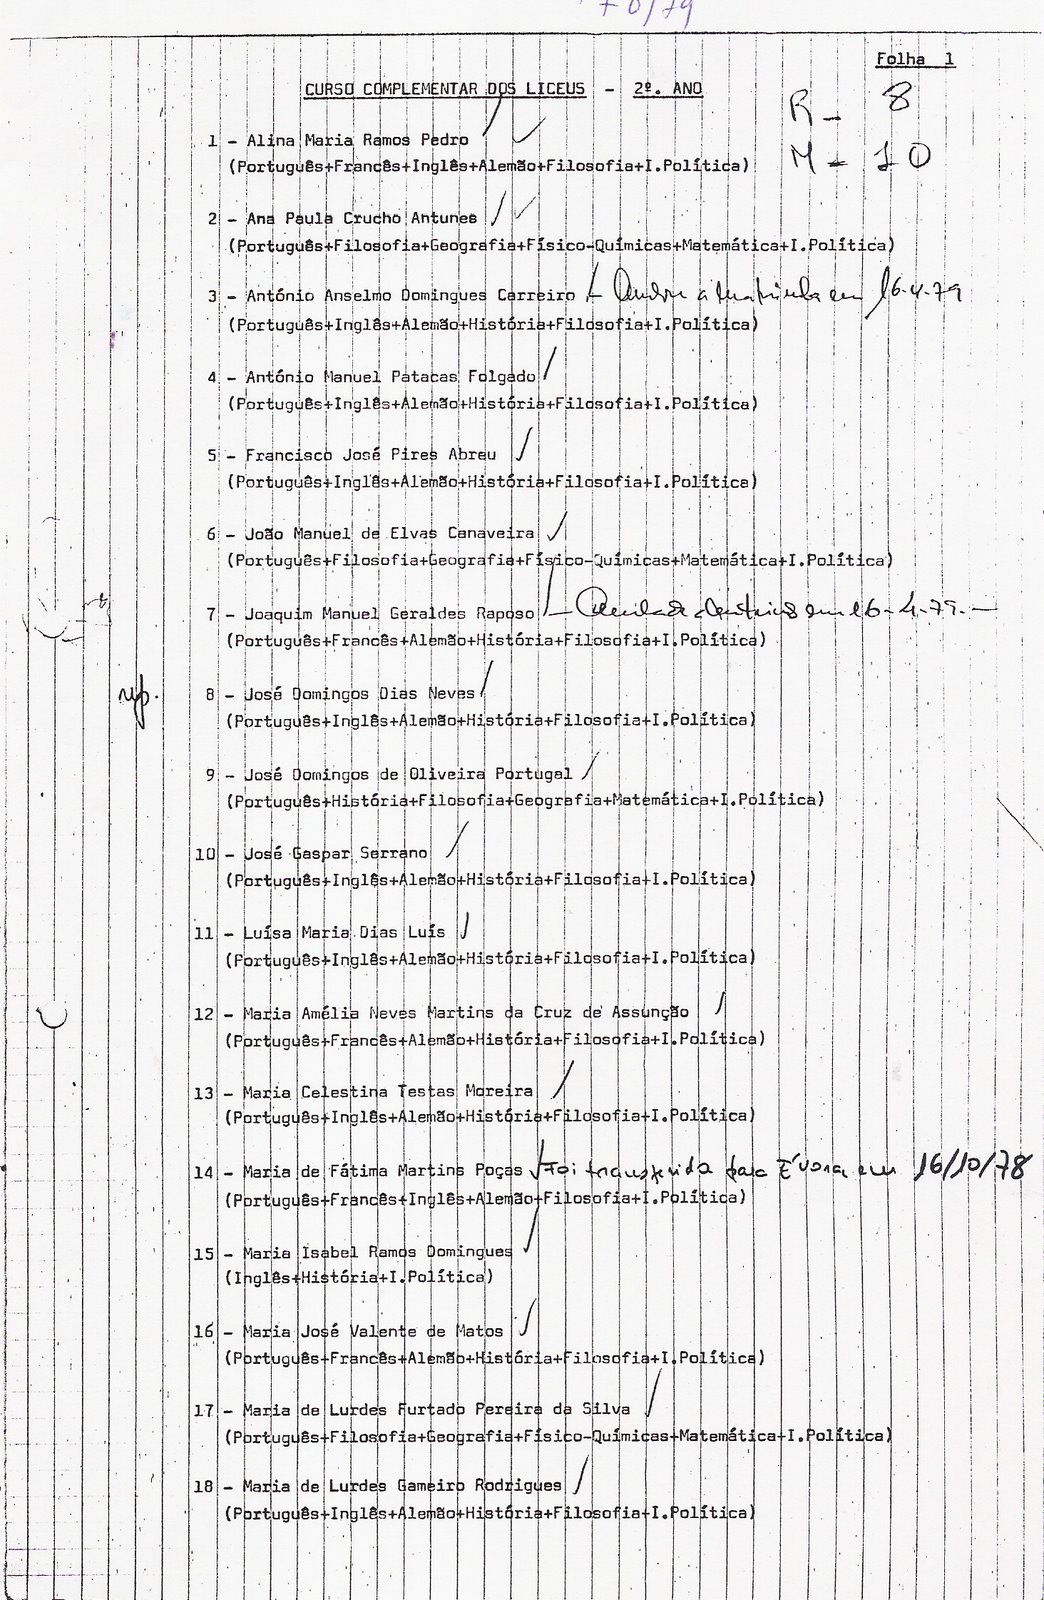 78/79
Folha 1
CURSO COMPLEMENTAR DOS LICEUS - 2º. ANO
R - 8
M - 10
1 - Alina Maria Ramos Pedro
(Português+Francês+Inglês+Alemão+Filosofia+I.Política)
2 - Ana Paula Crucho Antunes
(Português+Filosofia+Geografia+Físico-Químicas+Matemática+I.Política)
3 - António Anselmo Domingues Carreiro - Anulou a matrícula em 16-4-79
(Português+Inglês+Alemão+História+Filosofia+I.Política)
4 - António Manuel Patacas Folgado
(Português+Inglês+Alemão+História+Filosofia+I.Política)
5 - Francisco José Pires Abreu
(Português+Inglês+Alemão+História+Filosofia+I.Política)
6 - João Manuel de Elvas Canaveira
(Português+Filosofia+Geografia+Físico-Químicas+Matemática+I.Política)
7 - Joaquim Manuel Geraldes Raposo - em 16-4-79.-
(Português+Francês+Alemão+História+Filosofia+I.Política)
rep. 8 - José Domingos Dias Neves
(Português+Inglês+Alemão+História+Filosofia+I.Política)
9 - José Domingos de Oliveira Portugal
(Português+História+Filosofia+Geografia+Matemática+I.Política)
10 - José Gaspar Serrano
(Português+Inglês+Alemão+História+Filosofia+I.Política)
11 - Luísa Maria Dias Luís
(Português+Inglês+Alemão+História+Filosofia+I.Política)
12 - Maria Amélia Neves Martins da Cruz de Assunção
(Português+Francês+Alemão+História+Filosofia+I.Política)
13 - Maria Celestina Testas Moreira
(Português+Inglês+Alemão+História+Filosofia+I.Política)
14 - Maria de Fátima Martins Poças Foi transferida para Évora em 16/10/78
(Português+Francês+Inglês+Alemão+Filosofia+I.Política)
15 - Maria Isabel Ramos Domingues
(Inglês+História+I.Política)
16 - Maria José Valente de Matos
(Português+Francês+Alemão+História+Filosofia+I.Política)
17 - Maria de Lurdes Furtado Pereira da Silva
(Português+Filosofia+Geografia+Físico-Químicas+Matemática+I.Política)
18 - Maria de Lurdes Gameiro Rodrigues
(Português+Inglês+Alemão+História+Filosofia+I.Política)